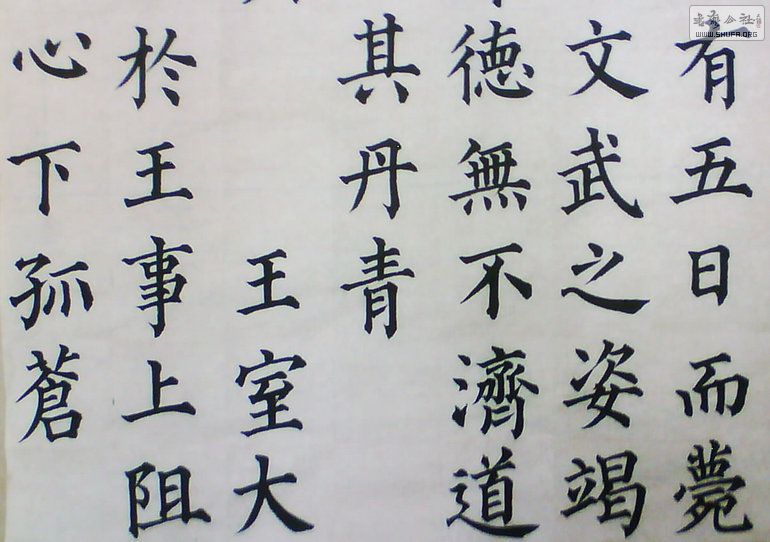 有五日而薨
文武之姿竭
德無不濟道
其丹青
王室大
於王事上阻
心下孤蒼
书法公社
WWW.SHUFA.ORG